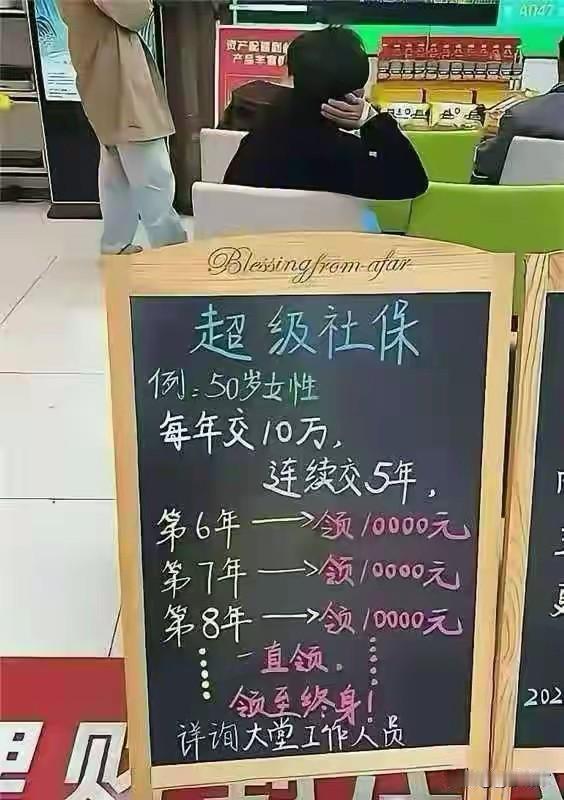 4047
资产配置
产品丰富
Blessing from afar
超级社保
例：50岁女性
每年交10万，
连续交5年，
第6年→领10000元
第7年→领10000元
第8年→领10000元
一直领，
领至终身！
详询大堂工作人员
202